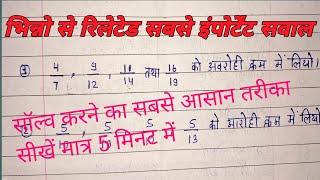 भिन्नो से रिलेटेड सबसे इंपोर्टेंट सवाल
③ 4/7, 9/12, 10/14 तथा 16/19 को अवरोही क्रम में लिखो।
सॉल्व करने का सबसे आसान तरीका
सीखें मात्र 5 मिनट में
5 5 5 5/13 को आरोही क्रम में लिखो